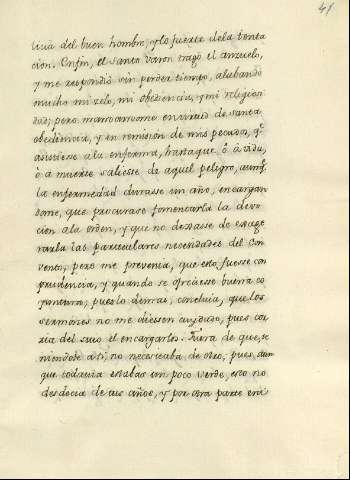 41
livia del buen hombre, y lo fuerte dela tenta
cion. Enfin, el santo varon tragò el anzuelo,
y me respondiò sin perder tiempo, alabando
mucho mi zelo, mi obediencia, y mi religiosi
dad; pero mandandome en virtud de santa
obediencia, y en remision de mis pecados, q̃.
asistiese ala enferma, hasta que ò à vida,
ò à muerte saliese de aquel peligro, aunq̃.
la enfermedad durasse un año, encargan
dome, que procurase fomentarla la devo
cion ala orden, y que no dexasse de exage
rarla las particulares necesidades del Con
vento, pero me prevenia, que esto fuesse con
prudencia, y quando se ofreciese buena co
yuntura; pues lo demas, concluia, que los
sermones no me diessen cuydado, pues cor
ria del suio el encargarlos. Fuera de que, te
niendote à ti, no necesitaba de otro; pues, aun
que todavia estabas un poco verde, esto no
desdecia de tus años, y por otra parte eri